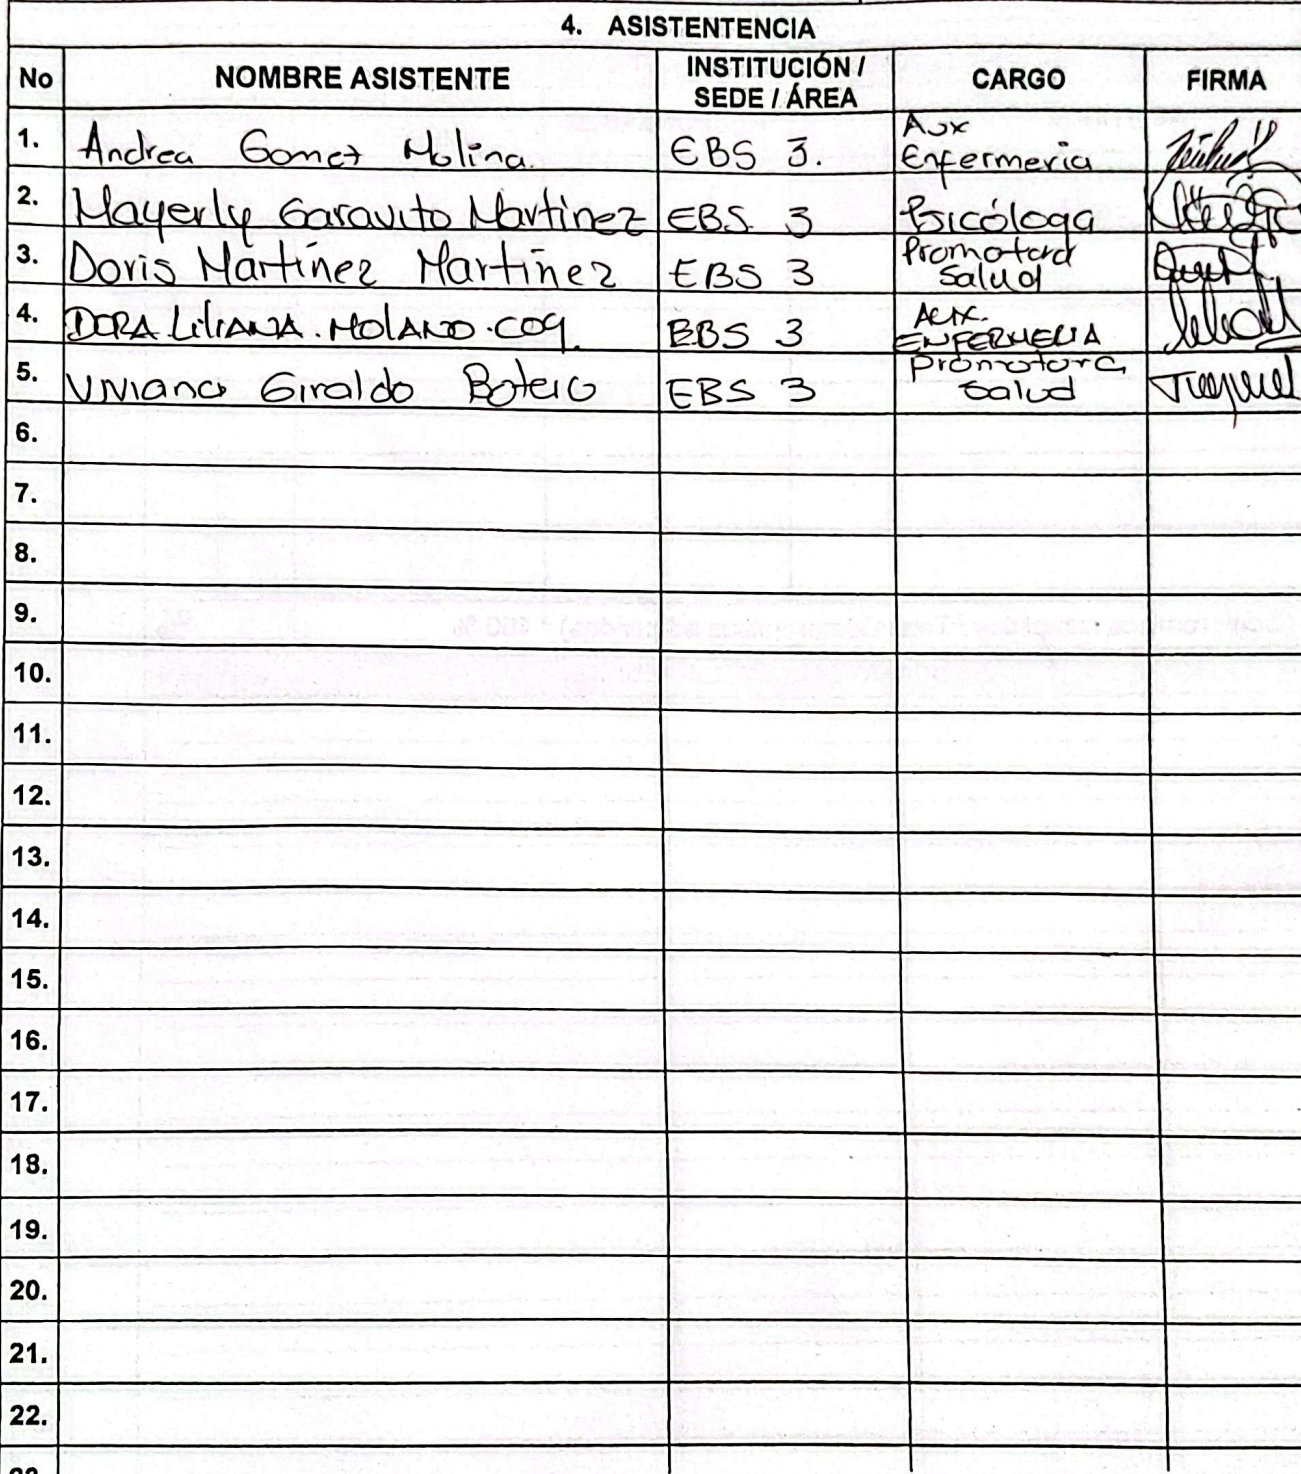 4. ASISTENTENCIA
No NOMBRE ASISTENTE INSTITUCIÓN / SEDE / ÁREA CARGO FIRMA
1. Andrea Gomez Molina. EBS 3. Aux Enfermeria
2. Mayerly Garavito Martinez EBS 3 Psicóloga
3. Doris Martinez Martinez EBS 3 Promotora Salud
4. DORA LILIANA. MOLANO. COY. EBS 3 AUX. ENFERMERIA
5. Viviana Giraldo Botero EBS 3 Promotora Salud
6.
7.
8.
9.
10.
11.
12.
13.
14.
15.
16.
17.
18.
19.
20.
21.
22.